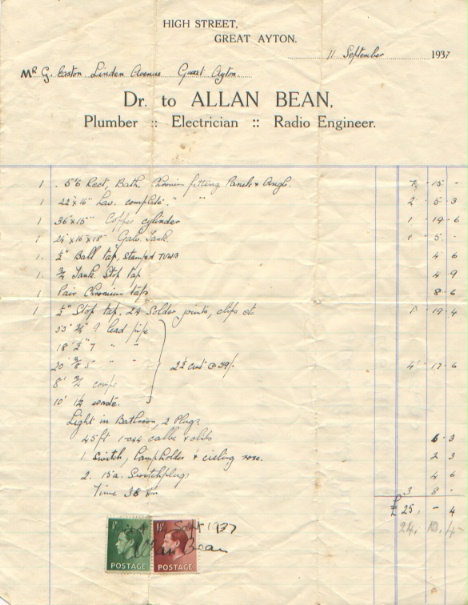 HIGH STREET,
GREAT AYTON.
11 September 1937
Mr G. Easton. Linden Avenue Great Ayton.
Dr. to ALLAN BEAN,
Plumber :: Electrician :: Radio Engineer.
1 . 5'6 Rect. Bath. Chromium fitting Panels & Angl. 7 - 15 -
1 22" x 16" Lav. complete. " " 2 - 5 - 3
1 36" x 15" Copper cylinder 1 - 19 - 6
1 24" x 16" x 18" Galv. Tank. 1 - 5 -
1 ½" Ball tap, stamped 4 6
1 ¾ Tank Stop tap 4 9
1 Pair Chromium taps 8 6
1 ½" Stop tap, 24 Solder joints, clips etc 1 - 19 4
33' ¾" 9 lead pipe
18' ½" 7 " "
20' " " 2½ cwt @ 39/- 4 - 17 - 6
8' ¾
10' 1½ waste.
Light in Bathroom 2 Plugs
45 ft 1-044 cable & clips 3
1. Switch, Lampholder & ceiling rose. 2 3
2. 15 a. Switchplugs 4 6
Time 38 hrs 3 8 -
£ 25. - 4
24. 10. 4
Sept 1937
Allan Bean
POSTAGE POSTAGE